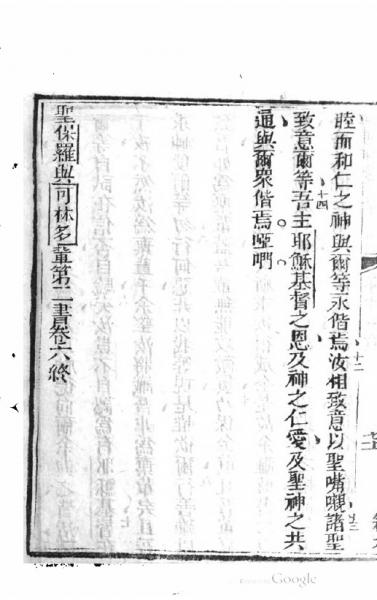 睦而和仁之神與爾等永偕焉汝相致意以聖嘴嚫諸聖
致意爾等吾主耶穌基督之恩及神之仁愛及聖神之共
通與爾衆偕焉啞們
聖保羅與可林多輩第二書卷六終
十二
十三
十四
Google